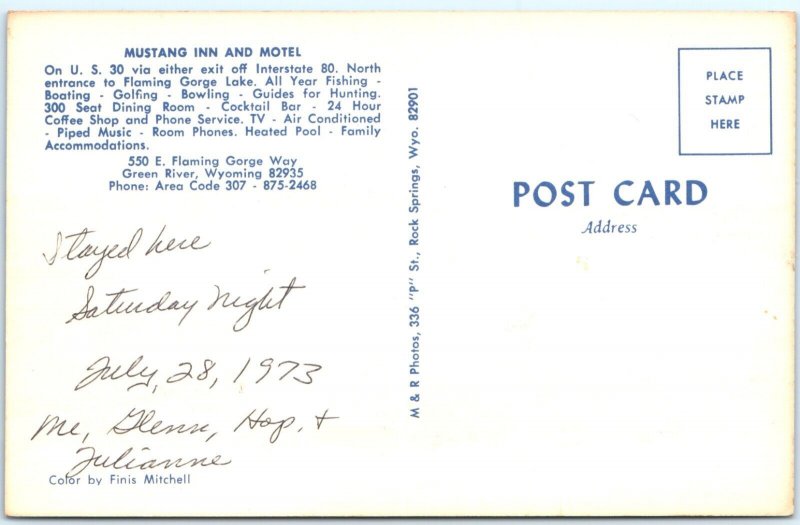 MUSTANG INN AND MOTEL
On U. S. 30 via either exit off Interstate 80. North
entrance to Flaming Gorge Lake. All Year Fishing -
Boating - Golfing - Bowling - Guides for Hunting.
300 Seat Dining Room - Cocktail Bar - 24 Hour
Coffee Shop and Phone Service. TV - Air Conditioned
- Piped Music - Room Phones. Heated Pool - Family
Accommodations.
550 E. Flaming Gorge Way
Green River, Wyoming 82935
Phone: Area Code 307 - 875-2468
Stayed here
Saturday night
July, 28, 1973
Me, Glenn, Hop. +
Julianne
Color by Finis Mitchell
M & R Photos, 336 "P" St., Rock Springs, Wyo. 82901
PLACE
STAMP
HERE
POST CARD
Address